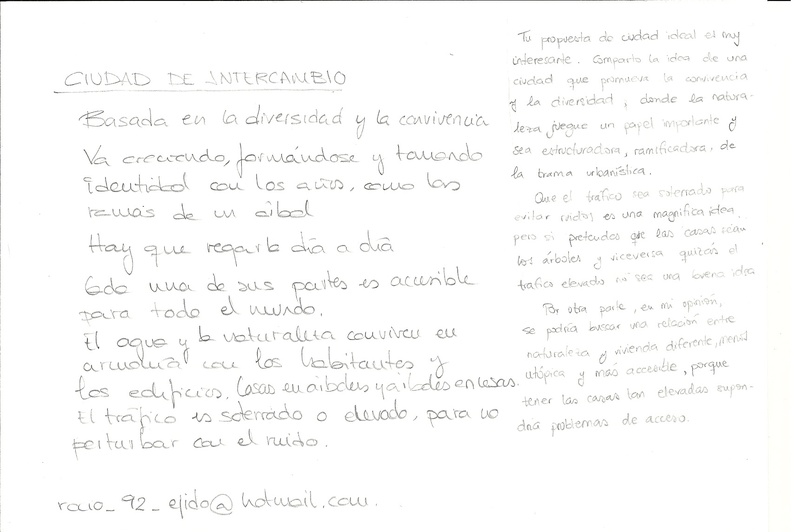 CIUDAD DE INTERCAMBIO
Basada en la diversidad y la convivencia
Va creciendo, formándose y tomando
identidad con los años, como las
ramas de un árbol
Hay que regarla día a día
Cada una de sus partes es accesible
para todo el mundo.
El agua y la naturaleza conviven en
armonía con los habitantes y
los edificios. Casas en árboles y árboles en casas.
El tráfico es soterrado o elevado, para no
perturbar con el ruido.
rocio_92_ejido@hotmail.com.
Tu propuesta de ciudad ideal es muy
interesante. Comparto la idea de una
ciudad que promueva la convivencia
y la diversidad, donde la natura-
leza juegue un papel importante y
sea estructuradora, ramificadora, de
la trama urbanística.
Que el tráfico sea soterrado para
evitar ruidos es una magnífica idea,
pero si pretendes que las casas sean
los árboles y viceversa quizás el
tráfico elevado no sea una buena idea
Por otra parte, en mi opinión,
se podría buscar una relación entre
naturaleza y vivienda diferente, menos
utópica y más accesible, porque
tener las casas tan elevadas supon-
dría problemas de acceso.